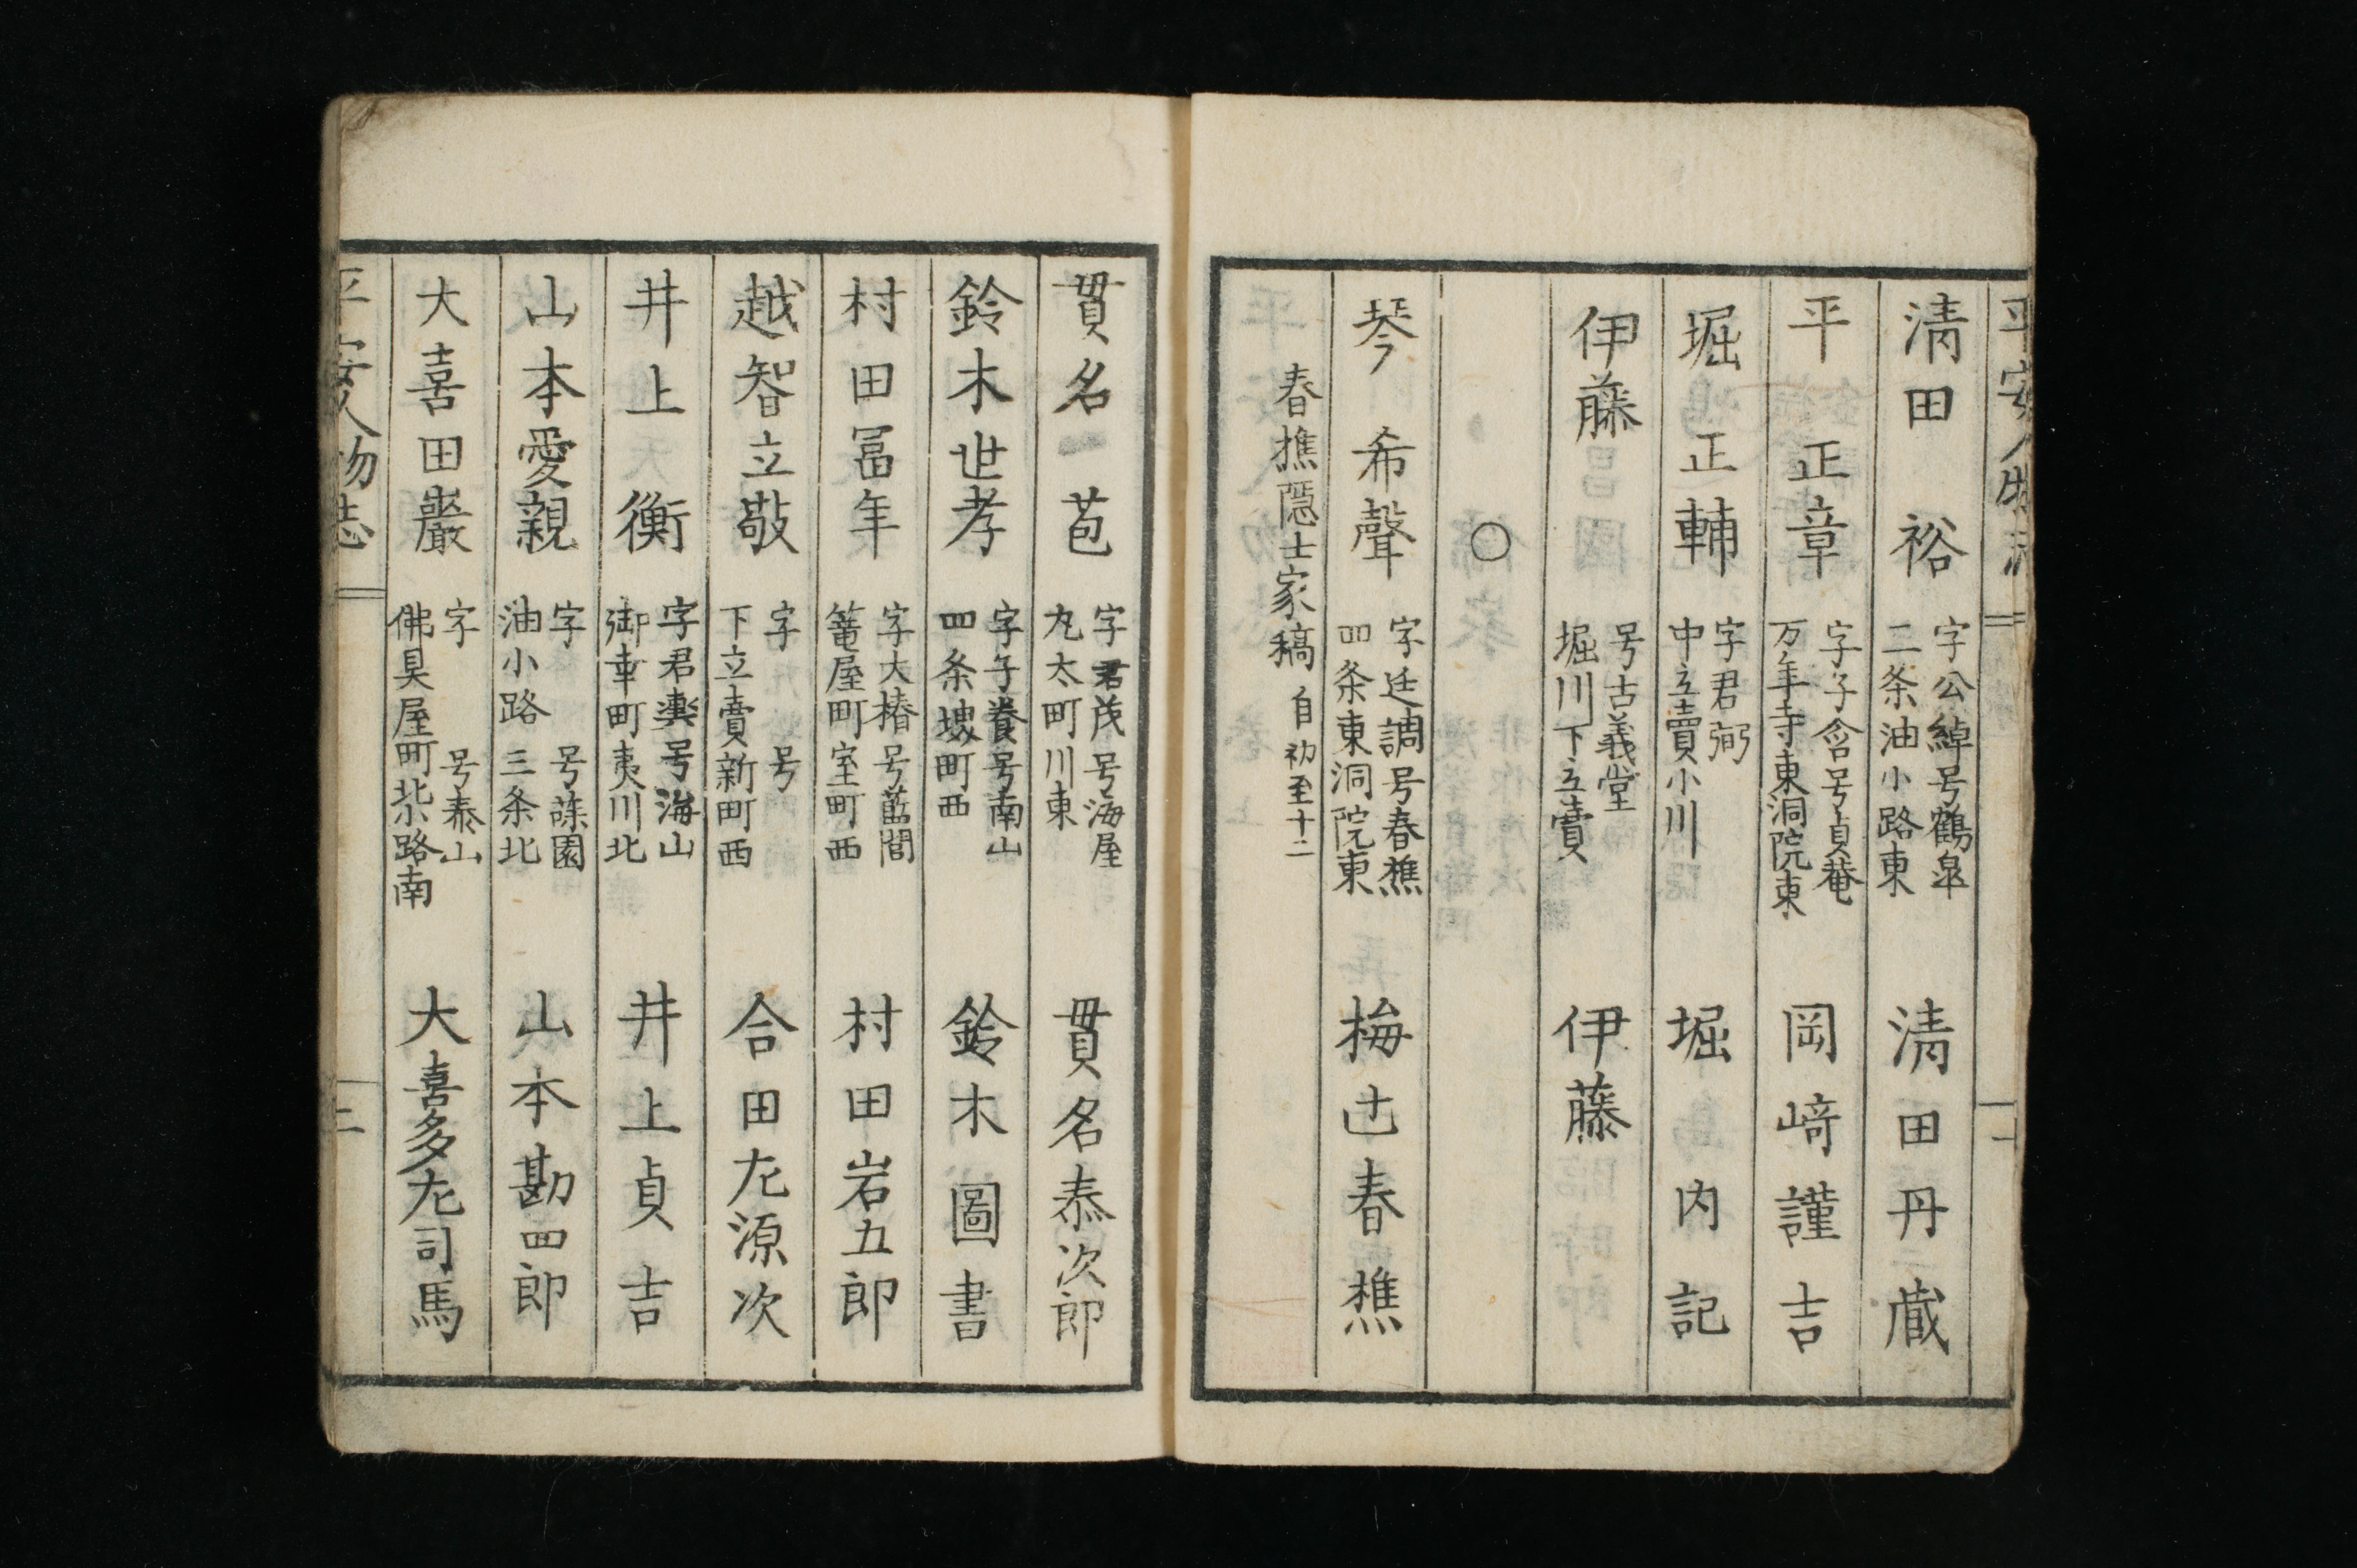 平安人物志
清田 裕 字公綽号鶴皐 二条油小路東 清田丹蔵
平 正章 字子含号貞菴 万年寺東洞院東 岡﨑謹吉
堀 正輔 字君弼 中立賣小川 堀 内記
伊藤 号古義堂 堀川下立賣 伊藤
○
琴 希聲 字廷調号春樵 四条東洞院東 梅辻春樵
春樵隠士家稿 自初至十二
貫名 苞 字君茂号海屋 丸太町川東 貫名泰次郎
鈴木世孝 字子養号南山 四条堺町西 鈴木圖書
村田冨年 字大椿号 篭屋町室町西 村田岩五郎
越智立敬 字 号 下立賣新町西 合田左源次
井上 衡 字君輿号海山 御幸町夷川北 井上貞吉
山本愛親 字 号葆園 油小路三条北 山本勘四郎
大喜田巖 字 号泰山 佛具屋町北小路南 大喜多左司馬
平安人物志 二